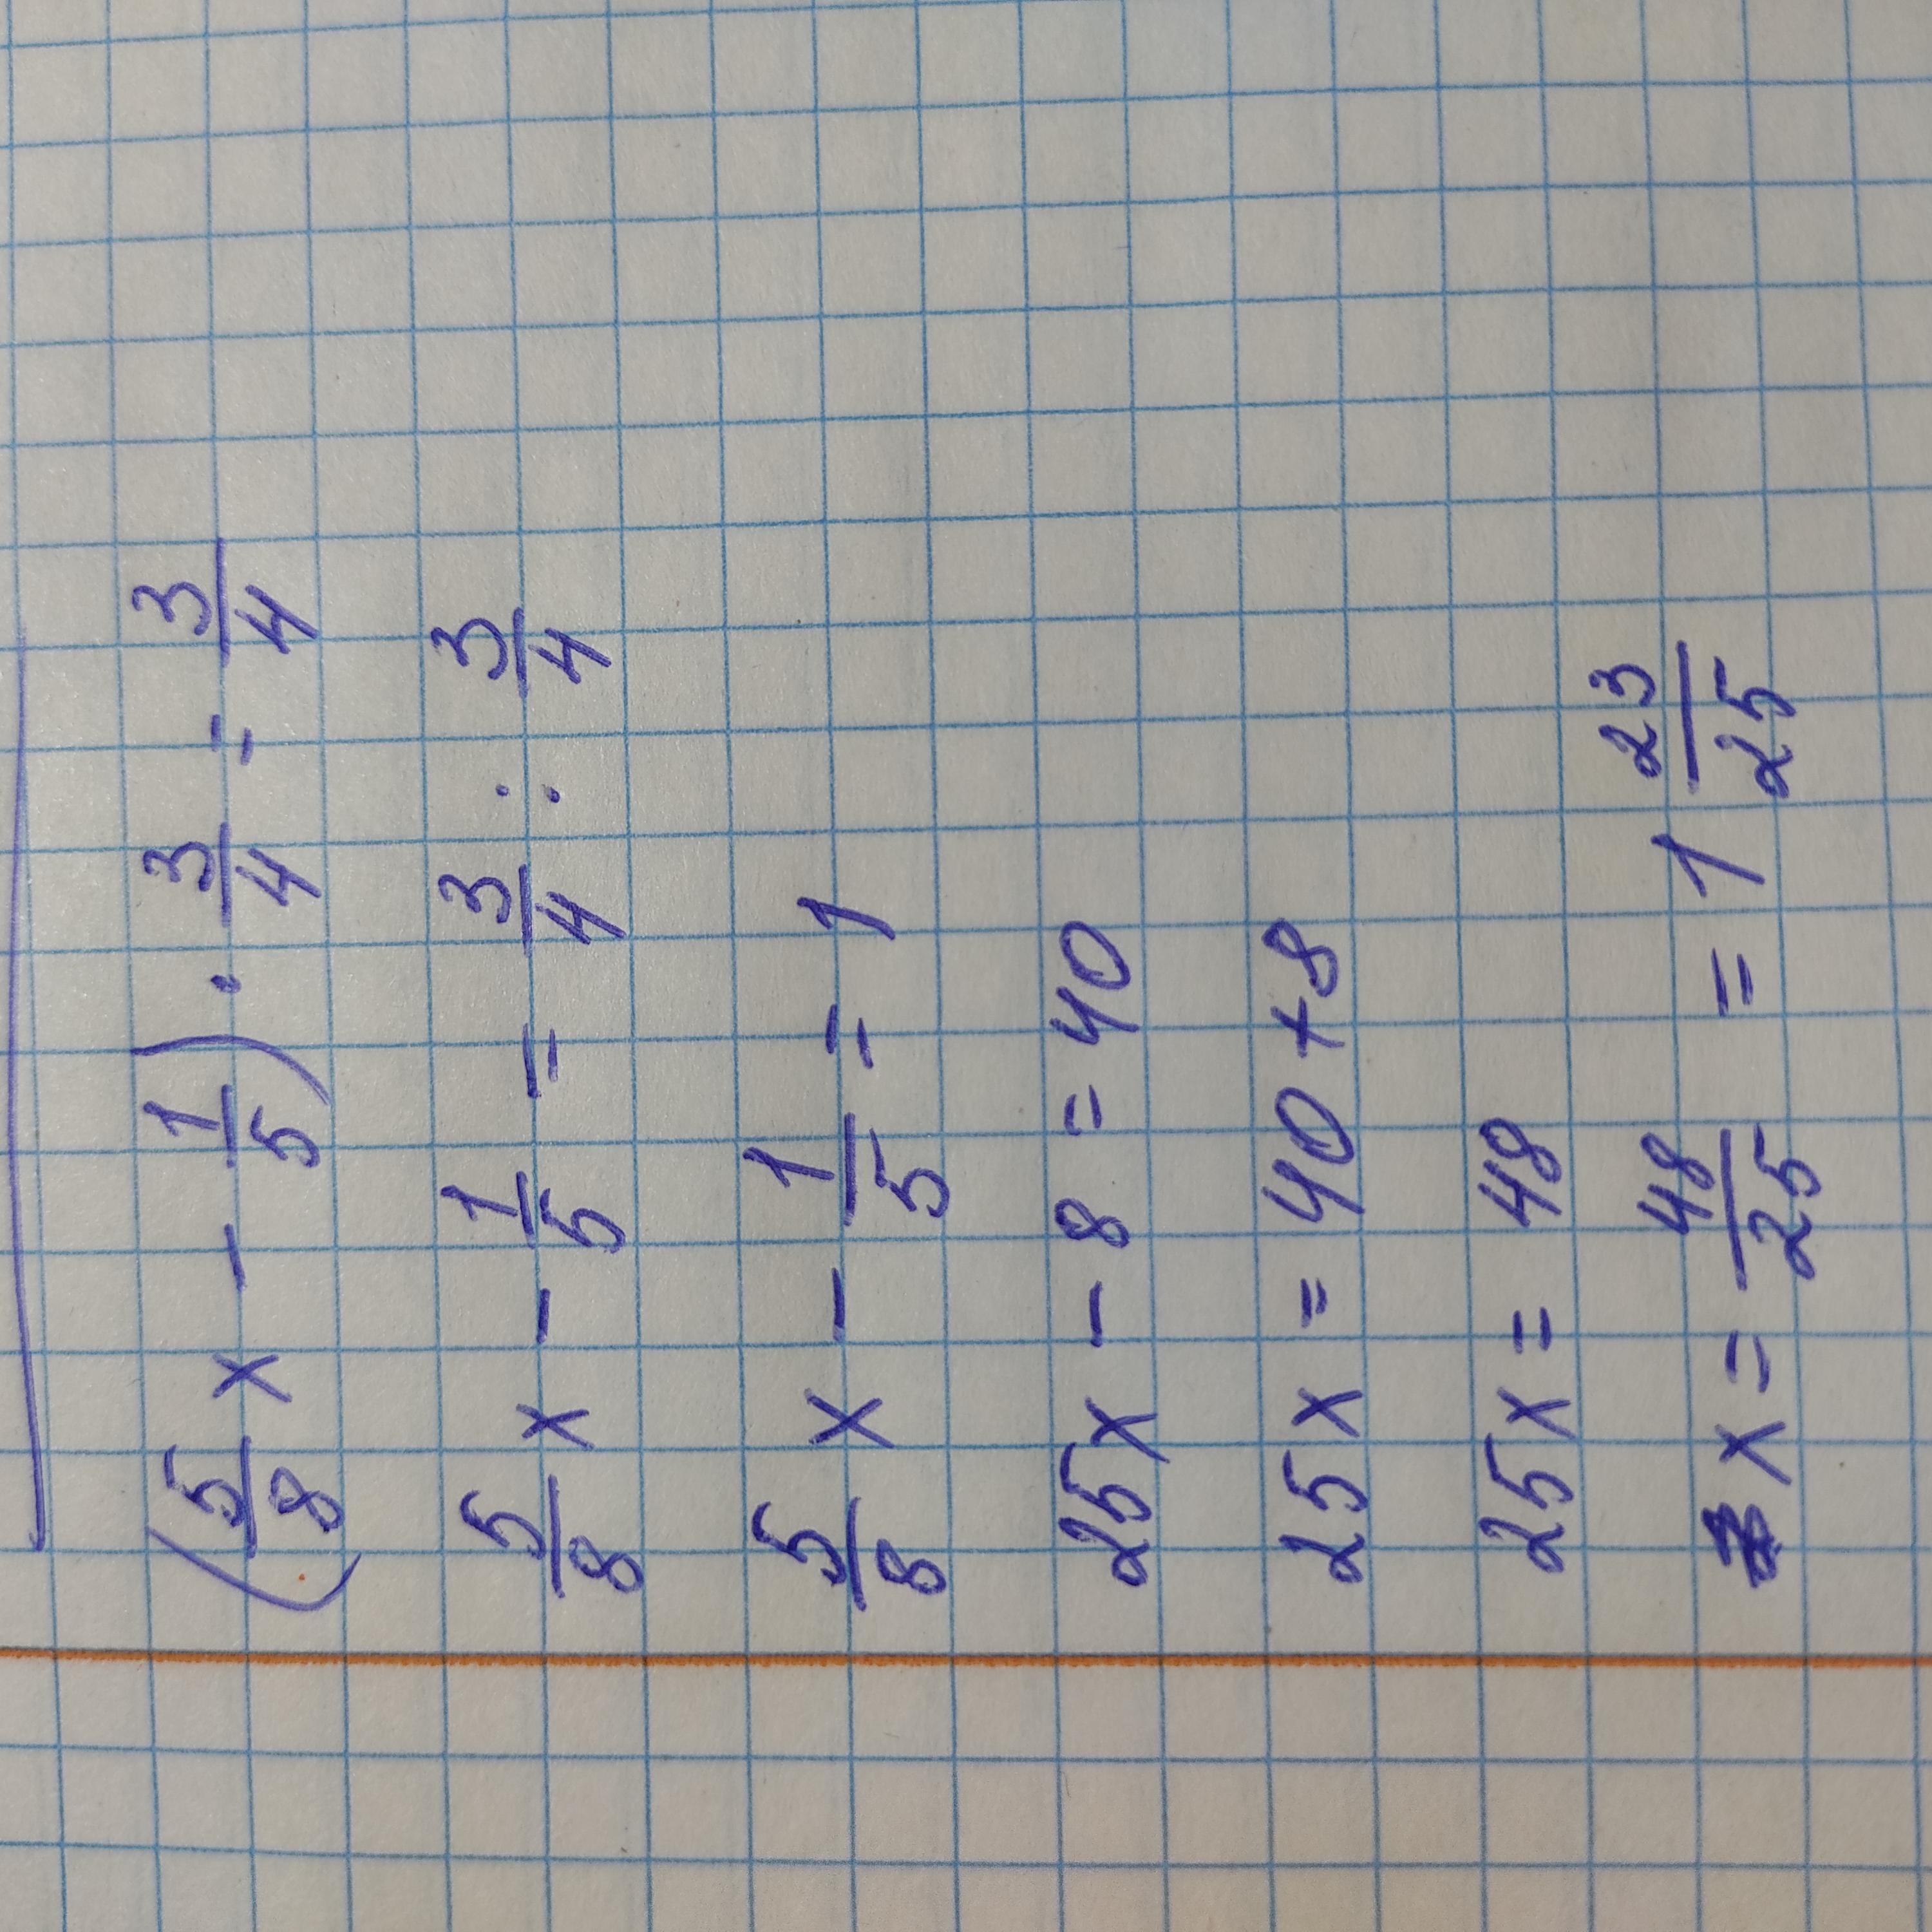 (5/8 x - 1/5) · 3/4 = 3/4
5/8 x - 1/5 = 3/4 : 3/4
5/8 x - 1/5 = 1
25x - 8 = 40
25x = 40 + 8
25x = 48
x = 48/25 = 1 23/25